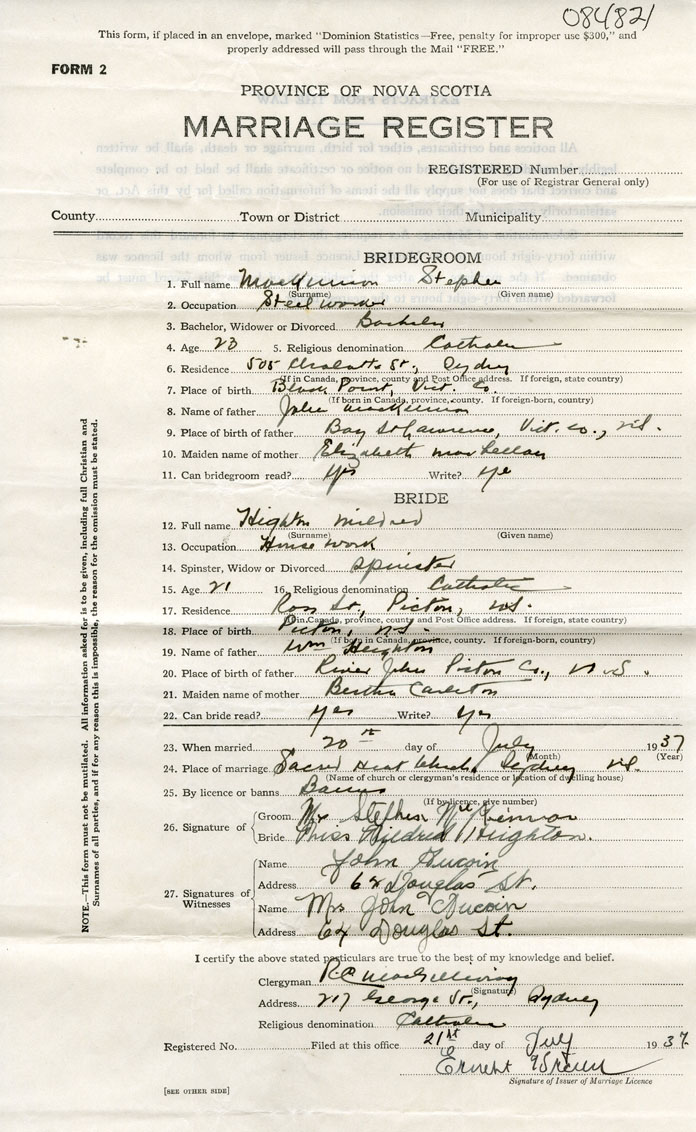 084821
This form, if placed in an envelope, marked "Dominion Statistics—Free, penalty for improper use $300," and
properly addressed will pass through the Mail "FREE."
FORM 2
PROVINCE OF NOVA SCOTIA
MARRIAGE REGISTER
REGISTERED Number
(For use of Registrar General only)
County Town or District Municipality
BRIDEGROOM
1. Full name MacKinnon Stephen
(Surname) (Given name)
2. Occupation Steel worker
3. Bachelor, Widower or Divorced Bachelor
4. Age 23 5. Religious denomination Catholic
6. Residence 505 St., Sydney
(If in Canada, province, county and Post Office address. If foreign, state country)
7. Place of birth Black Point, Vict. Co.
(If born in Canada, province, county. If foreign-born, country)
8. Name of father John MacKinnon
9. Place of birth of father Bay St Lawrence, Vict. Co., N.S.
10. Maiden name of mother Elizabeth MacLellan
11. Can bridegroom read? Yes Write? Yes
BRIDE
12. Full name Highton Mildred
(Surname) (Given name)
13. Occupation House work
14. Spinster, Widow or Divorced Spinster
15. Age 21 16. Religious denomination Catholic
17. Residence Ross St., Pictou, N.S.
(If in Canada, province, county and Post Office address. If foreign, state country)
18. Place of birth Pictou, N.S.
(If born in Canada, province, county. If foreign-born, country)
19. Name of father Wm Heighton
20. Place of birth of father River John Pictou Co., N.S.
21. Maiden name of mother Bertha Carleton
22. Can bride read? Yes Write? Yes
23. When married 20th day of July 1937
(Month) (Year)
24. Place of marriage Sacred Heart Church, Sydney N.S.
(Name of church or clergyman's residence or location of dwelling house)
25. By licence or banns Banns
(If by licence, give number)
26. Signature of
Groom Mr Stephen McKinnon
Bride Miss Mildred Heighton.
27. Signatures of Witnesses
Name John Aucoin
Address 64 Douglas St.
Name Mrs John Aucoin
Address 64 Douglas St.
I certify the above stated particulars are true to the best of my knowledge and belief.
Clergyman R.C. MacGillivray
(Signature)
Address 217 George St., Sydney
Religious denomination Catholic
Registered No. Filed at this office 21st day of July 1937
Ernest
Signature of Issuer of Marriage Licence
[SEE OTHER SIDE]
NOTE.—This form must not be mutilated. All information asked for is to be given, including full Christian and
Surnames of all parties, and if for any reason this is impossible, the reason for the omission must be stated.